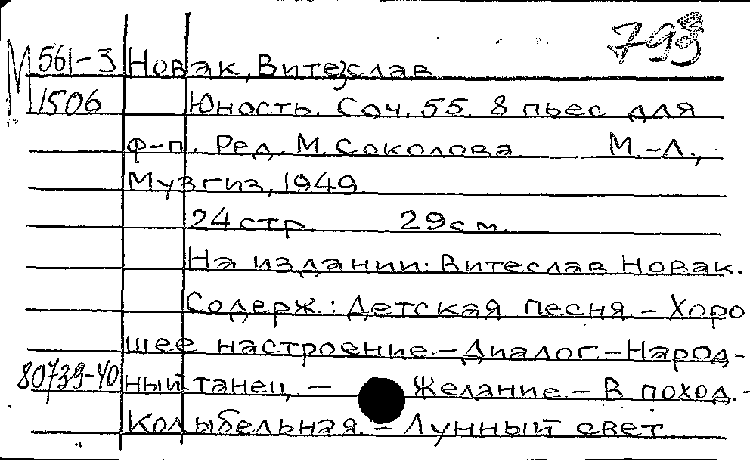 793
М 561-3 Новак, Витезслав
1506 Юность. Соч. 55. 8 пьес для
ф-п. Ред. М. Соколова М.-Л.,
Музгиз, 1949
24 стр. 29 см.
На издании: Витеслав Новак.
Содерж.: Детская песня. – Хоро
шее настроение. – Диалог. – Народ-
80739-40 ный танец. – Желание. – В поход. –
Колыбельная. – Лунный свет